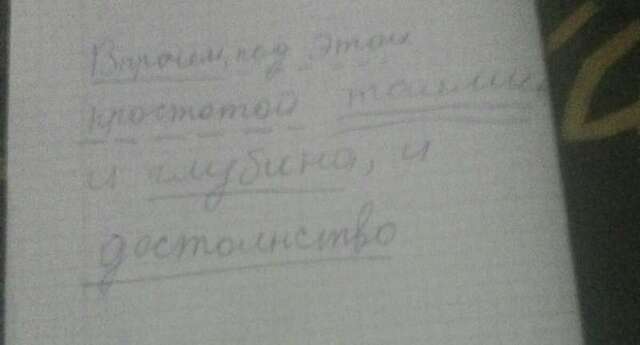 Впрочем, под этой
простотой таились
и глубина, и
достоинство